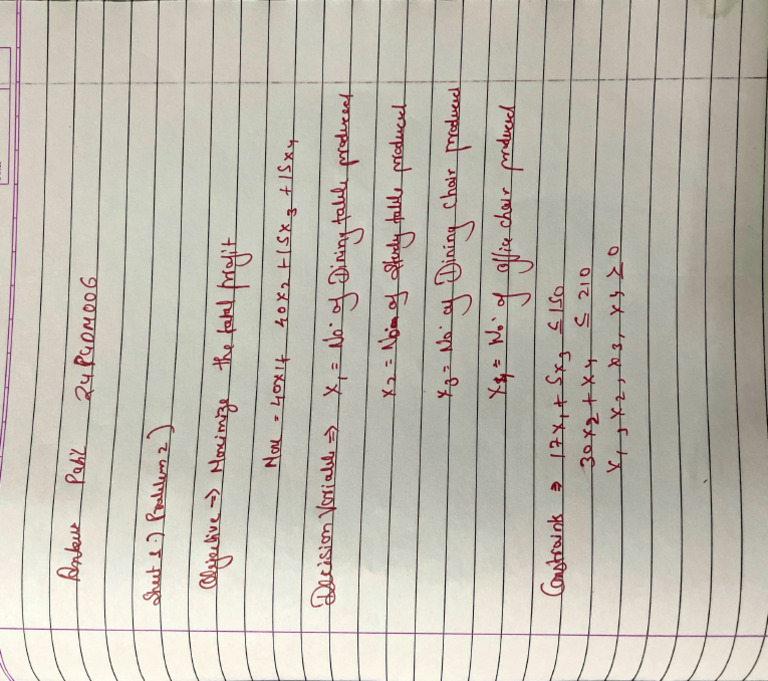 Ankur Patil 24PGDM006
Sheet 1.) Problem 2)
Objective => Maximize the total profit
Max = 40x1+ 40x2 +15x3 +15x4
Decision Variable => X1 = No. of Dining table produced
X2 = No. of Study table produced
X3 = No. of Dining Chair produced
X4 = No. of office chair produced
Constraints => 17X1 + 5x3 ≤ 150
30x2 + x4 ≤ 210
X1, X2, x3, x4 ≥ 0